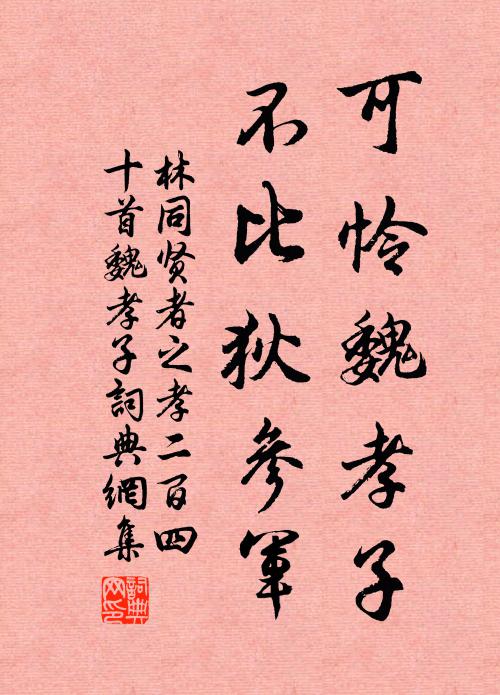 可怜魏孝子
不比狄參軍
林同贤者之孝二百四
十首魏孝子詞典網集
詞典网印